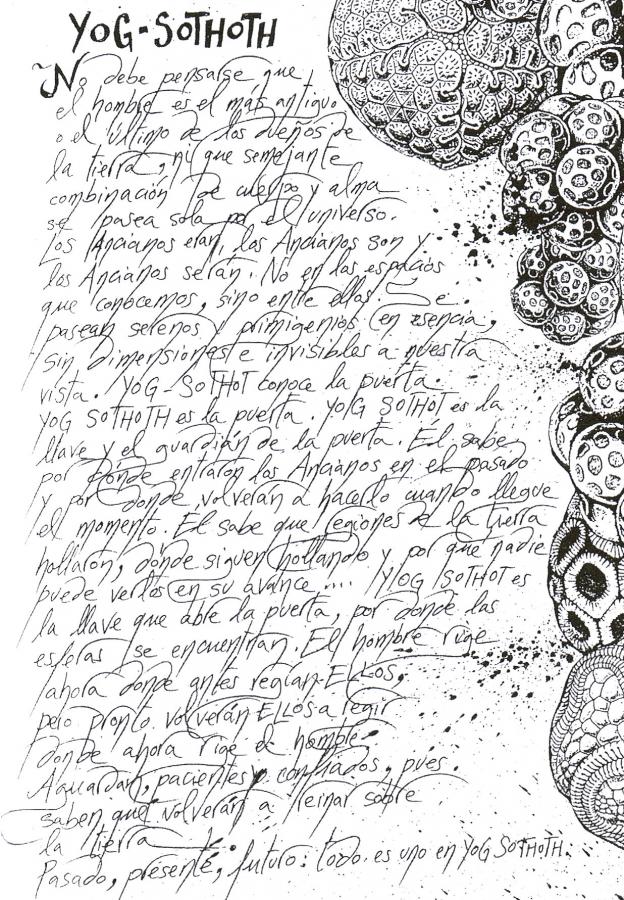 YOG-SOTHOTH
No debe pensarse que
el hombre es el más antiguo
o el último de los dueños de
la tierra, ni que semejante
combinación de cuerpo y alma
se pasea sola por el universo.
Los Ancianos eran, los Ancianos son y
los Ancianos serán. No en los espacios
que conocemos, sino entre ellos. Se
pasean serenos y primigenios en esencia,
sin dimensiones e invisibles a nuestra
vista. YOG-SOTHOT conoce la puerta.
YOG SOTHOTH es la puerta. YOG SOTHOT es la
llave y el guardián de la puerta. Él sabe
por dónde entraron los Ancianos en el pasado
y por donde volverán a hacerlo cuando llegue
el momento. Él sabe que regiones de la tierra
hollaron, dónde siguen hollando y por qué nadie
puede verlos en su avance .... YOG SOTHOT es
la llave que abre la puerta, por donde las
esferas se encuentran. El hombre rige
ahora donde antes regían ELLOS,
pero pronto volverán ELLOS a regir
donde ahora rige el hombre.
Aguardan, pacientes y confiados, pues.
saben que volverán a reinar sobre
la tierra.
Pasado, presente, futuro: todo es uno en YOG SOTHOTH.